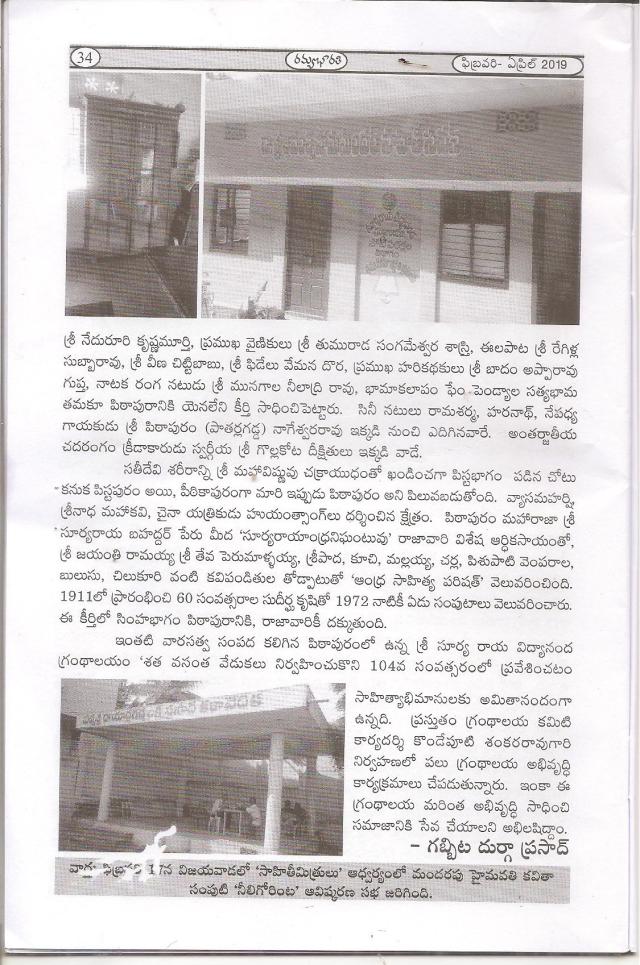 34
రమ్యభారతి
ఫిబ్రవరి- ఏప్రిల్ 2019
శ్రీ నేదురూరి కృష్ణమూర్తి, ప్రముఖ వైణికులు శ్రీ తుమురాడ సంగమేశ్వర శాస్త్రి, ఈలపాట శ్రీ రేగిళ్ల
సుబ్బారావు, శ్రీ వీణ చిట్టిబాబు, శ్రీ ఫిడేలు వేమన దొర, ప్రముఖ హరికథకులు శ్రీ బాదం అప్పారావు
గుప్త, నాటక రంగ నటుడు శ్రీ మునగాల నీలాద్రి రావు, భామాకలాపం ఫేం పెండ్యాల సత్యభామ
తమకూ పిఠాపురానికి యెనలేని కీర్తి సాధించిపెట్టారు. సినీ నటులు రామశర్మ, హరనాథ్, నేపధ్య
గాయకుడు శ్రీ పిఠాపురం (పాతర్లగడ్డ) నాగేశ్వరరావు ఇక్కడి నుంచి ఎదిగినవారే. అంతర్జాతీయ
చదరంగం క్రీడాకారుడు స్వర్గీయ శ్రీ గొల్లకోట దీక్షితులు ఇక్కడి వాడే.
సతీదేవి శరీరాన్ని శ్రీ మహావిష్ణువు చక్రాయుధంతో ఖండించగా పిస్టభాగం పడిన చోటు
కనుక పిస్టపురం అయి, పీఠికాపురంగా మారి ఇప్పుడు పిఠాపురం అని పిలువబడుతోంది. వ్యాసమహర్షి,
శ్రీనాధ మహాకవి, చైనా యత్రికుడు హుయంత్సాంగ్‌లు దర్శించిన క్షేత్రం. పిఠాపురం మహారాజా శ్రీ
సూర్యరాయ బహద్దర్ పేరు మీద 'సూర్యరాయాంధ్రనిఘంటువు' రాజావారి విశేష ఆర్ధికసాయంతో,
శ్రీ జయంతి రామయ్య శ్రీ తేవ పెరుమాళ్ళయ్య, శ్రీపాద, కూచి, మల్లయ్య, చర్ల, పిశుపాటి వెంపరాల,
బులుసు, చిలుకూరి వంటి కవిపండితుల తోడ్పాటుతో 'ఆంధ్ర సాహిత్య పరిషత్' వెలువరించింది.
1911లో ప్రారంభించి 60 సంవత్సరాల సుదీర్ఘ కృషితో 1972 నాటికి ఏడు సంపుటాలు వెలువరించారు.
ఈ కీర్తిలో సింహభాగం పిఠాపురానికి, రాజావారికీ దక్కుతుంది.
ఇంతటి వారసత్వ సంపద కలిగిన పిఠాపురంలో ఉన్న శ్రీ సూర్య రాయ విద్యానంద
గ్రంథాలయం 'శత వసంత వేడుకలు నిర్వహించుకొని 104వ సంవత్సరంలో ప్రవేశించటం
సాహిత్యాభిమానులకు అమితానందంగా
ఉన్నది. ప్రస్తుతం గ్రంథాలయ కమిటి
కార్యదర్శి కొండేపూటి శంకరరావుగారి
నిర్వహణలో పలు గ్రంథాలయ అభివృద్ధి
కార్యక్రమాలు చేపడుతున్నారు. ఇంకా ఈ
గ్రంథాలయ మరింత అభివృద్ధి సాధించి
సమాజానికి సేవ చేయాలని అభిలషిద్దాం.
– గబ్బిట దుర్గా ప్రసాద్
17న విజయవాడలో 'సాహితీమిత్రులు' ఆధ్వర్యంలో మందరపు హైమవతి కవితా
సంపుటి 'నీలిగోరింట' ఆవిష్కరణ సభ జరిగింది.